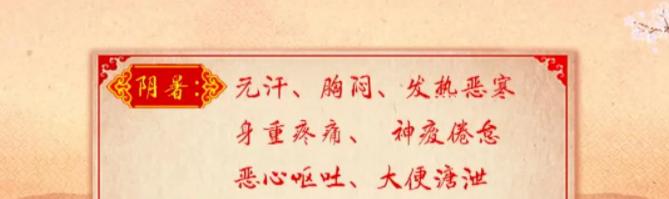 阴暑：无汗、胸闷、发热恶寒
身重疼痛、神疲倦怠
恶心呕吐、大便溏泄